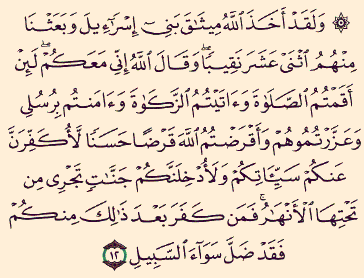 ۞ وَلَقَدْ أَخَذَ ٱللَّهُ مِيثَٰقَ بَنِىٓ إِسْرَٰٓءِيلَ وَبَعَثْنَا
مِنْهُمُ ٱثْنَىْ عَشَرَ نَقِيبًا ۖ وَقَالَ ٱللَّهُ إِنِّى مَعَكُمْ ۖ لَئِنْ
أَقَمْتُمُ ٱلصَّلَوٰةَ وَءَاتَيْتُمُ ٱلزَّكَوٰةَ وَءَامَنتُم بِرُسُلِى
وَعَزَّرْتُمُوهُمْ وَأَقْرَضْتُمُ ٱللَّهَ قَرْضًا حَسَنًا لَّأُكَفِّرَنَّ
عَنكُمْ سَيِّـَٔاتِكُمْ وَلَأُدْخِلَنَّكُمْ جَنَّٰتٍ تَجْرِى مِن
تَحْتِهَا ٱلْأَنْهَٰرُ ۚ فَمَن كَفَرَ بَعْدَ ذَٰلِكَ مِنكُمْ
فَقَدْ ضَلَّ سَوَآءَ ٱلسَّبِيلِ ١٢